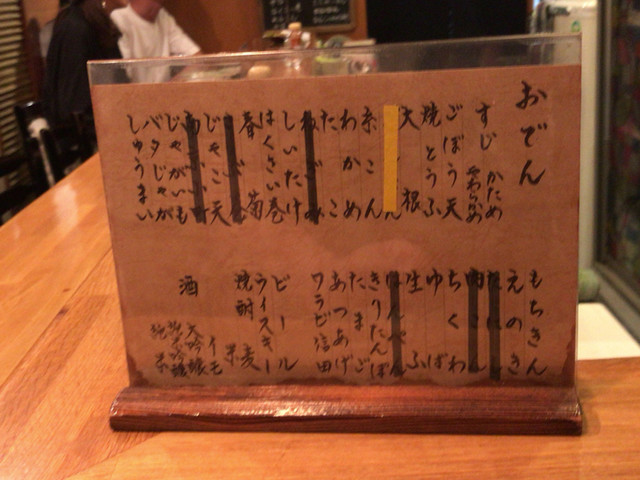 おでん
すじ かため
やわらかめ
ごぼう天
焼とうふ
大根
糸こん
わかめ
たこ
しいたけ
はくさい巻
春菊
じゃこ天
じゃがいも
バタじゃが
しゅうまい
もちきん
えのき
ちくわ
ゆば
生ふ
はんぺん
きりたんぽ
たまご
あつあげ
ワラビ信田
ビール
ウイスキー
焼酎 麦
米
イモ
酒 大吟醸
純米吟醸
純米